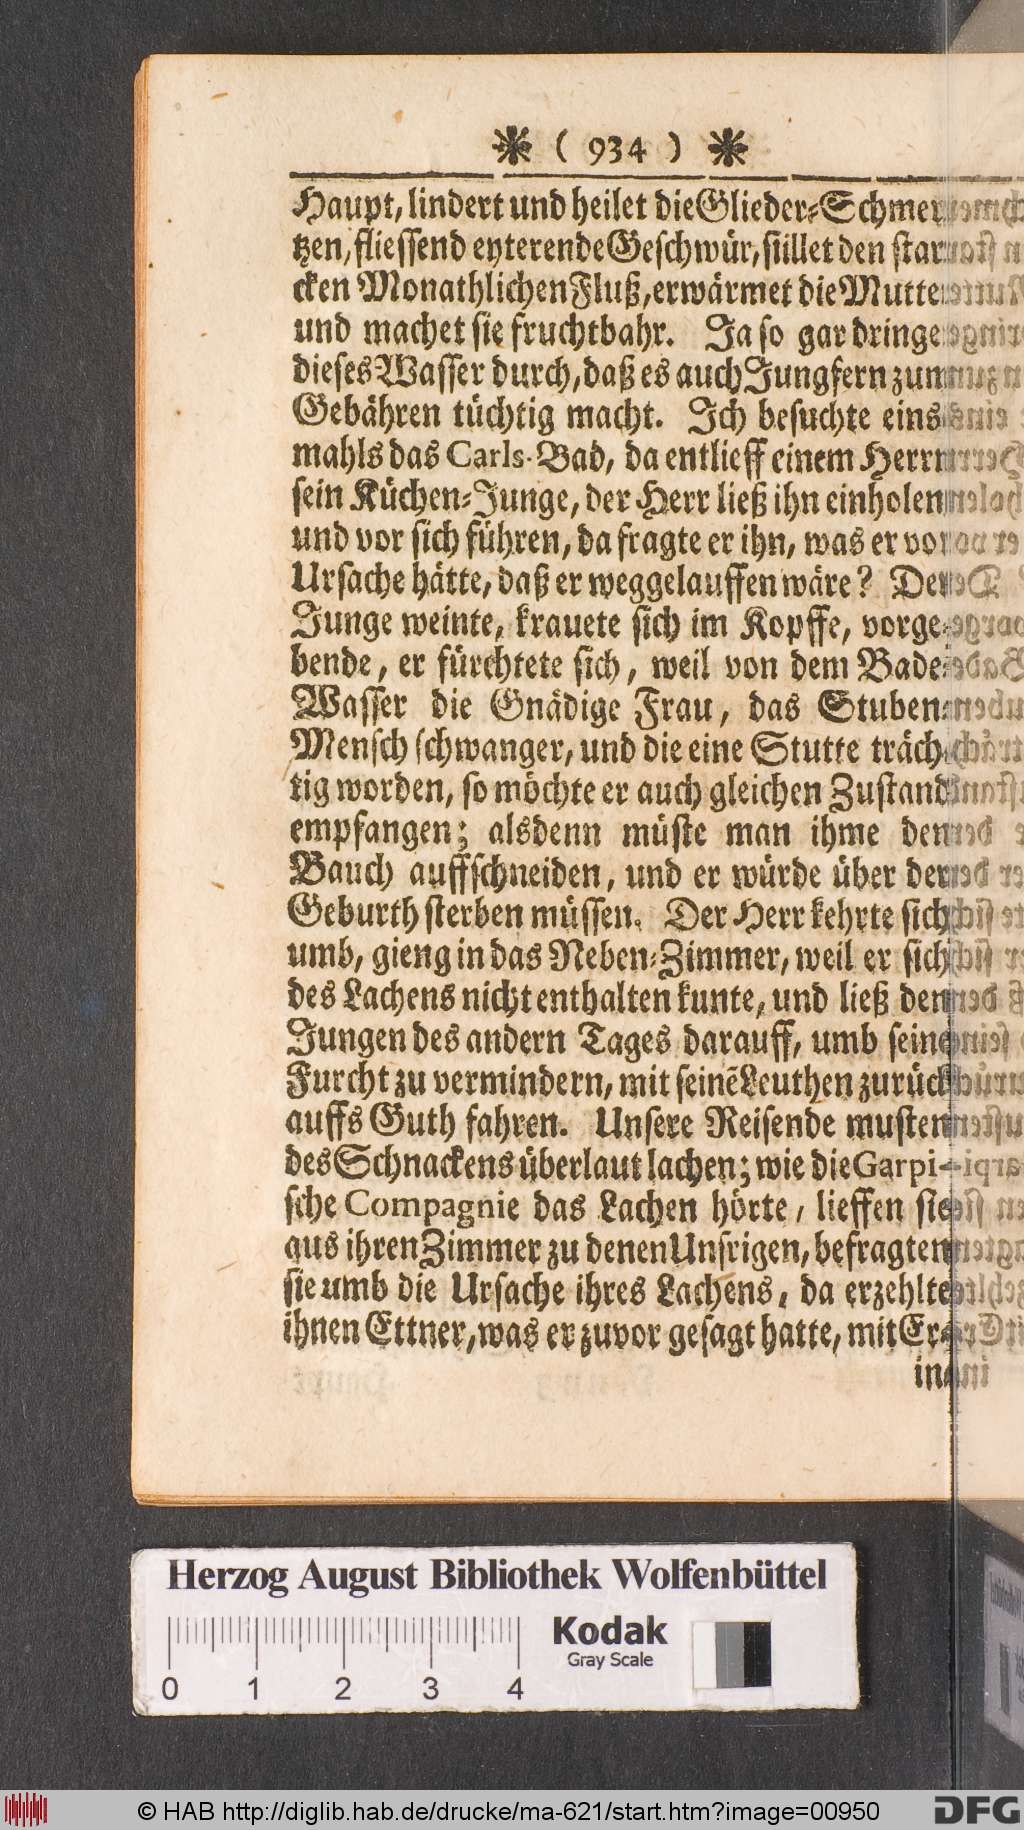 ( 934 )
Haupt, lindert und heilet die Glieder-Schmer-
tzen, fliessend eyterende Geschwür, stillet den star-
cken Monathlichen Fluß, erwärmet die Mutter
und machet sie fruchtbahr. Ja so gar dringe
dieses Wasser durch, daß es auch Jungfern zum
Gebähren tüchtig macht. Ich besuchte eins-
mahls das Carls-Bad, da entlieff einem Herrn
sein Küchen-Junge, der Herr ließ ihn einholen
und vor sich führen, da fragte er ihn, was er vor
Ursache hätte, daß er weggelauffen wäre? Der
Junge weinte, krauete sich im Kopffe, vorge-
bende, er fürchtete sich, weil von dem Bade-
Wasser die Gnädige Frau, das Stuben-
Mensch schwanger, und die eine Stutte träch-
tig worden, so möchte er auch gleichen Zustand
empfangen; alsdenn müste man ihme den
Bauch auffschneiden, und er würde über der
Geburth sterben müssen. Der Herr kehrte sich
umb, gieng in das Neben-Zimmer, weil er sich
des Lachens nicht enthalten kunte, und ließ den
Jungen des andern Tages darauff, umb seine
Furcht zu vermindern, mit seinē Leuthen zurück
auffs Guth fahren. Unsere Reisende musten
des Schnackens überlaut lachen; wie die Garpi-
sche Compagnie das Lachen hörte, lieffen sie
aus ihren Zimmer zu denen Unsrigen, befragten
sie umb die Ursache ihres Lachens, da erzehlte
ihnen Ettner, was er zuvor gesagt hatte, mit Er-
Herzog August Bibliothek Wolfenbüttel
Kodak
Gray Scale
0 1 2 3 4
© HAB http://diglib.hab.de/drucke/ma-621/start.htm?image=00950
DFG